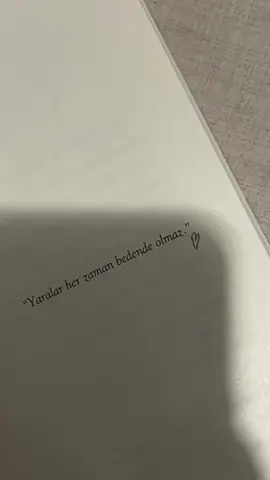 "Yaralar her zaman bedende olmaz."